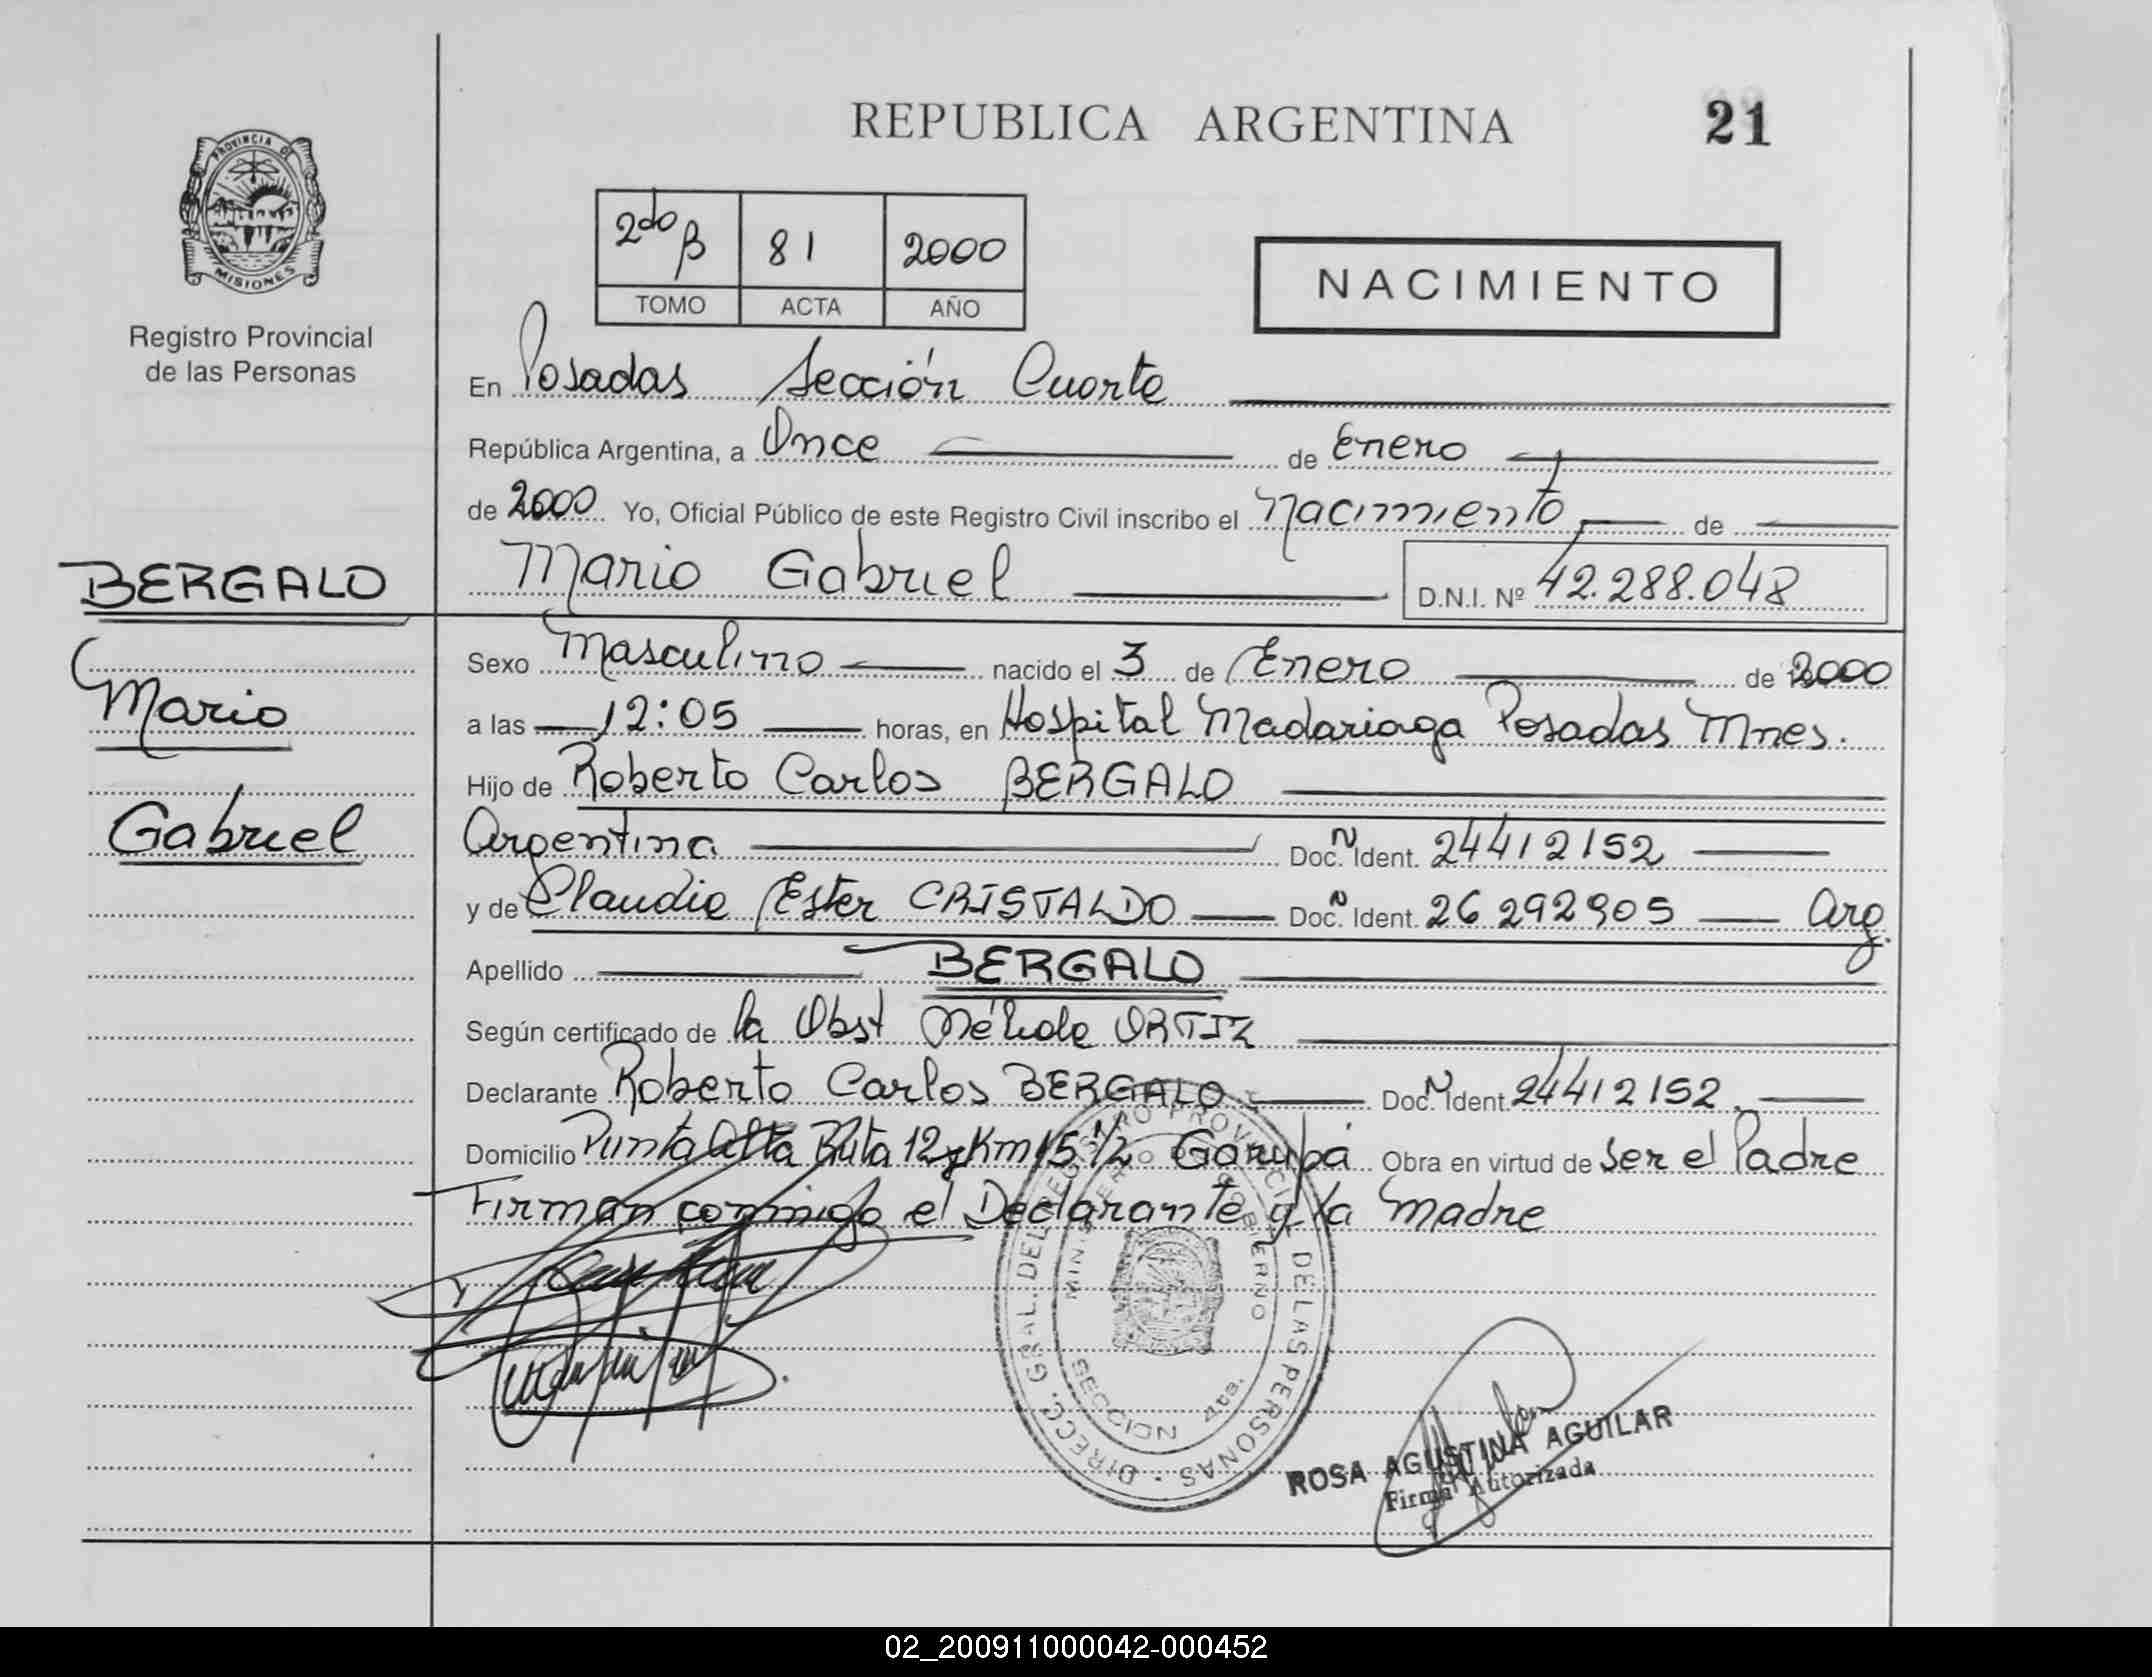 REPUBLICA ARGENTINA
21
PROVINCIA DE
MISIONES
Registro Provincial
de las Personas
2do B 81 2000
TOMO ACTA AÑO
NACIMIENTO
En Posadas Sección Cuarta
República Argentina, a Once de Enero
de 2000 Yo, Oficial Público de este Registro Civil inscribo el Nacimiento de
Mario Gabriel D.N.I. Nº 42.288.048
BERGALO
Mario
Gabriel
Sexo Masculino nacido el 3 de Enero de 2000
a las 12:05 horas, en Hospital Madariaga Posadas Mnes.
Hijo de Roberto Carlos BERGALO
Argentina Doc. N Ident. 24412152
y de Claudia Ester CRISTALDO Doc. N Ident. 26292905 Arg.
Apellido BERGALO
Según certificado de la Obst ORTIZ
Declarante Roberto Carlos BERGALO Doc. N Ident. 24412152
Domicilio Punta Alta Ruta 12 y Km 15 1/2 Garupá Obra en virtud de ser el Padre
Firman conmigo el Declarante y la Madre
DIRECC. GRAL. DEL REGISTRO PROVINCIAL DE LAS PERSONAS
MINISTERIO DE GOBIERNO
SECCION 4ta.
ROSA AGUSTINA AGUILAR
Firma Autorizada
02_200911000042-000452